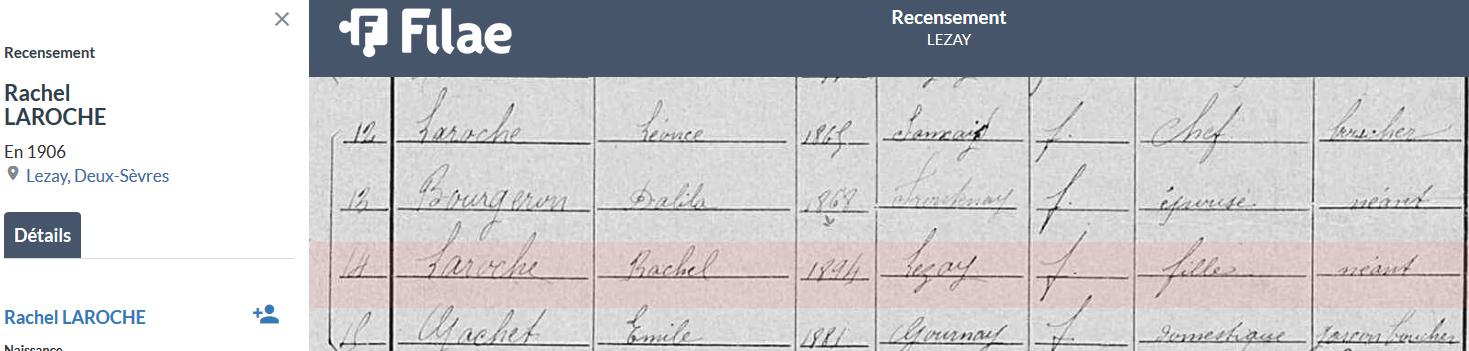 ×
Recensement
Rachel
LAROCHE
En 1906
Lezay, Deux-Sèvres
Détails
Rachel LAROCHE
Naissance
Filae
Recensement
LEZAY
12 Laroche Léonce 1865 f. Chef boucher
13 Bourgeron Dalila 1868 f. épouse néant
14 Laroche Rachel 1894 Lezay f. fille néant
15 Machet Emile 1881 Gournay f. domestique garçon boucher